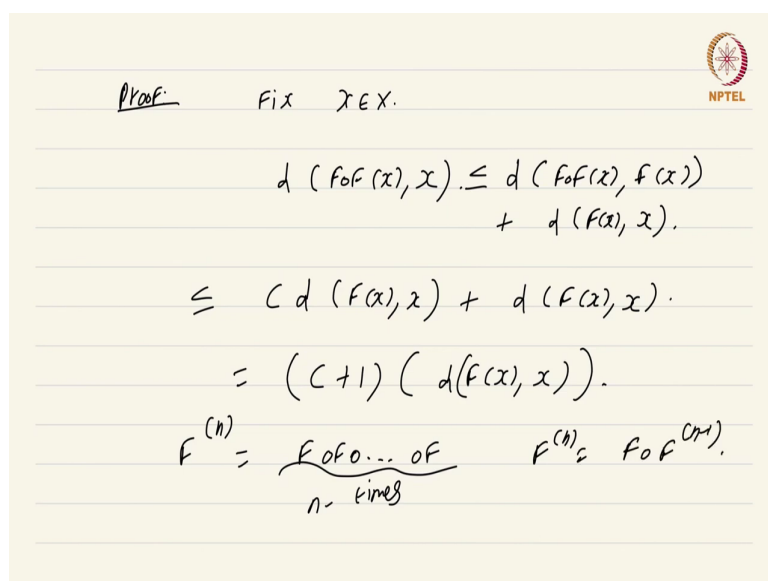 NPTEL
Proof: Fix x ∈ X.
d (F∘F(x), x) ≤ d (F∘F(x), F(x))
+ d (F(x), x).
≤ C d (F(x), x) + d (F(x), x).
= (C+1) ( d(F(x), x)).
F^(n) = F∘F∘... ∘F F^(n) = F∘F^(n-1).
n- times